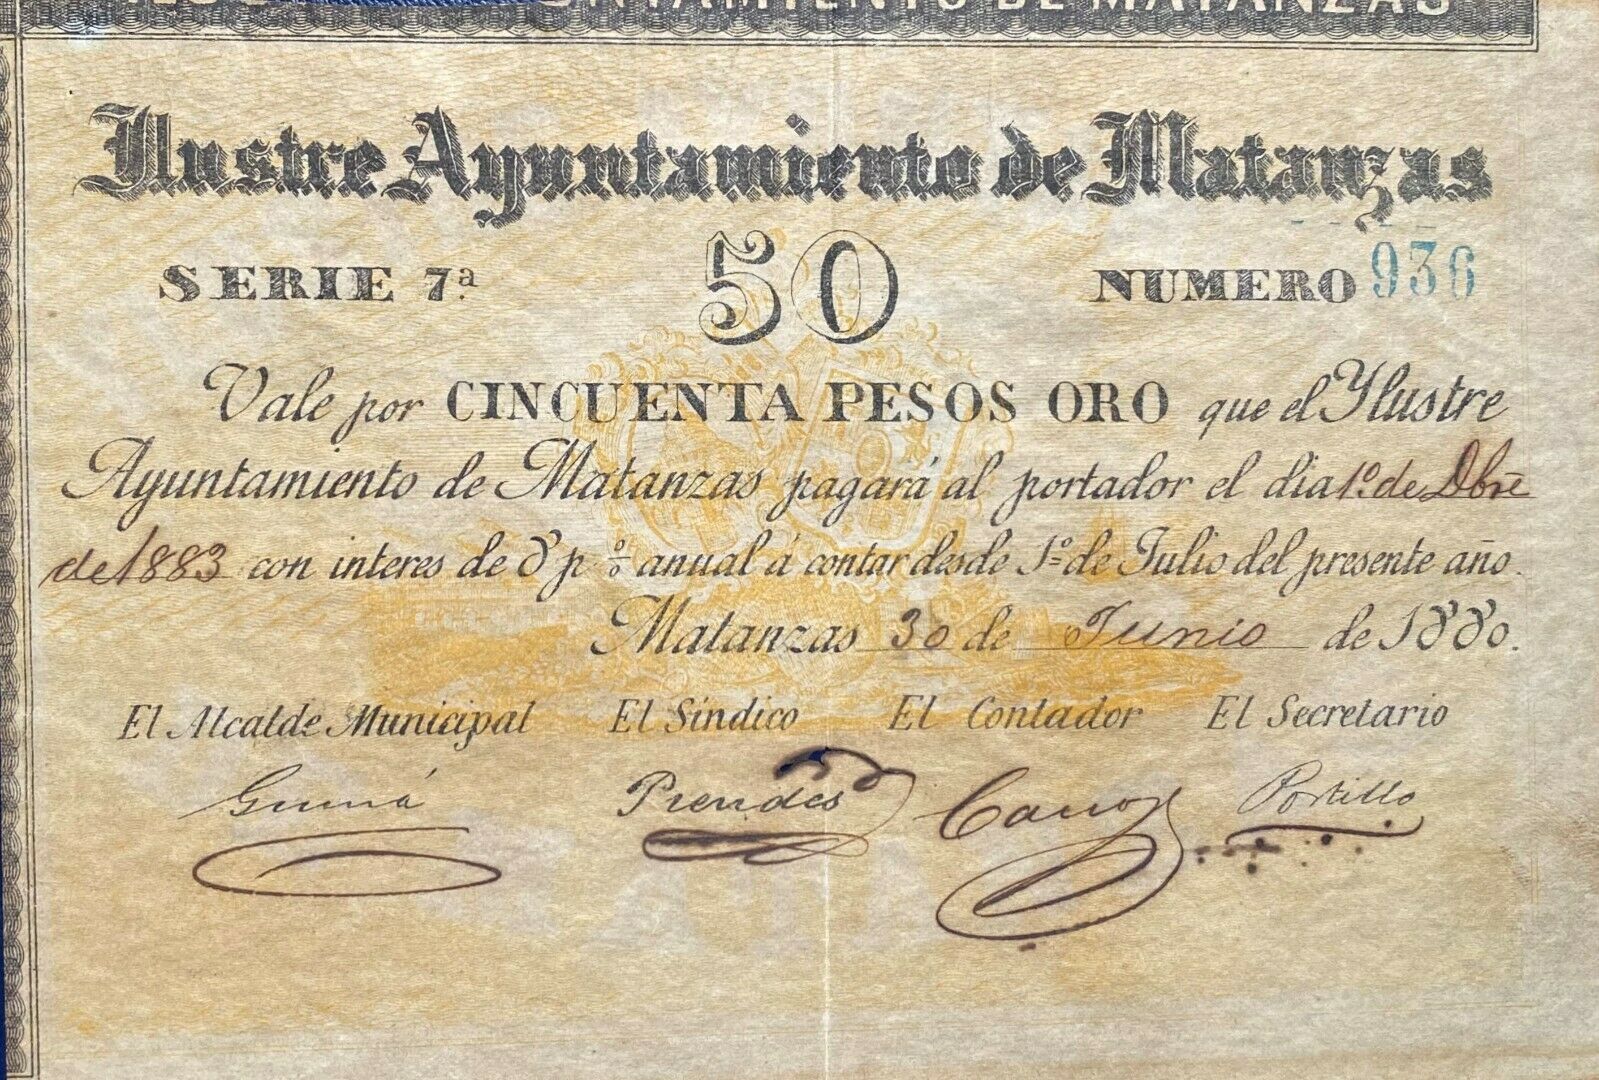 AYUNTAMIENTO DE MATANZAS
Ilustre Ayuntamiento de Matanzas
SERIE 7ª 50 NUMERO 936
Vale por CINCUENTA PESOS ORO que el Ylustre
Ayuntamiento de Matanzas pagará al portador el dia 1º de Dbre
de 1883 con interes de 8 p% anual á contar desde 1º de Julio del presente año.
Matanzas 30 de Junio de 1880.
El Alcalde Municipal El Síndico El Contador El Secretario
Prendes Portillo